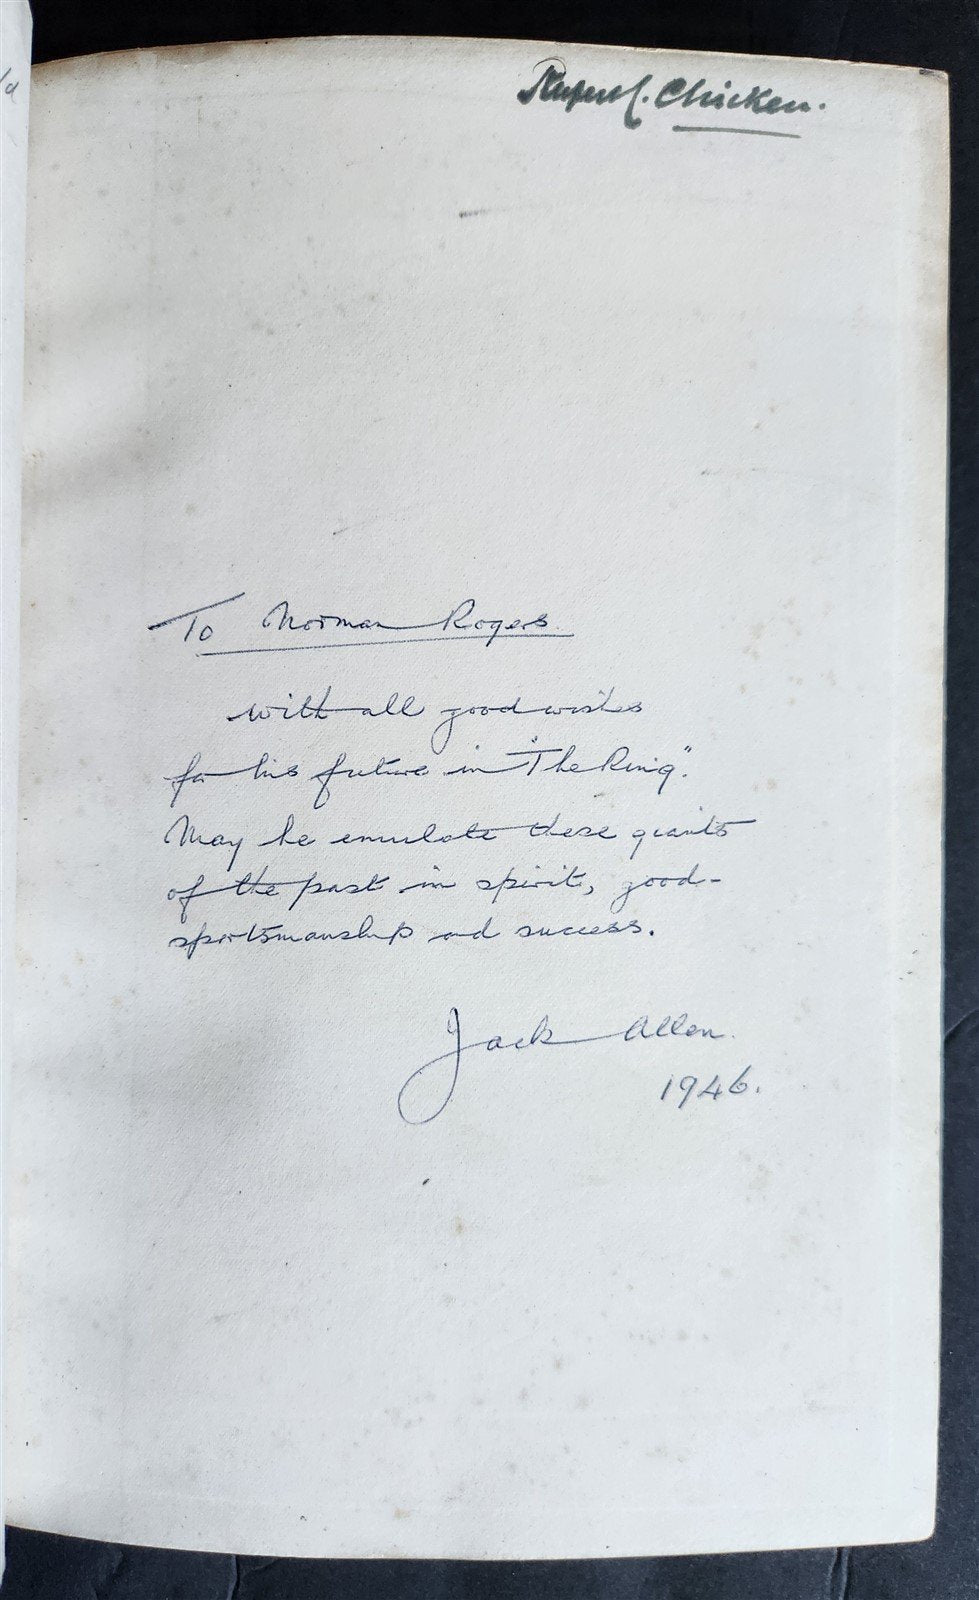 Rupert C. Chicken.
To Norman Rogers
with all good wishes
for his future in "The Ring".
May he emulate these giants
of the past in spirit, good-
sportsmanship and success.
Jack Allen.
1946.